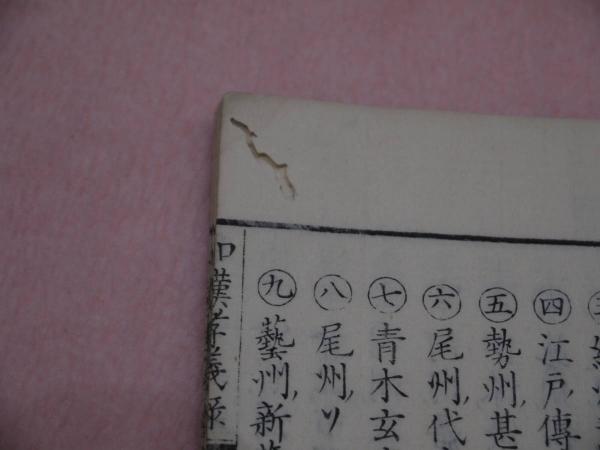 ㊃江戸傳
㊄勢州甚
㊅尾州代
㊆青木玄
㊇尾州リ
㊈藝州新
和漢孝義録